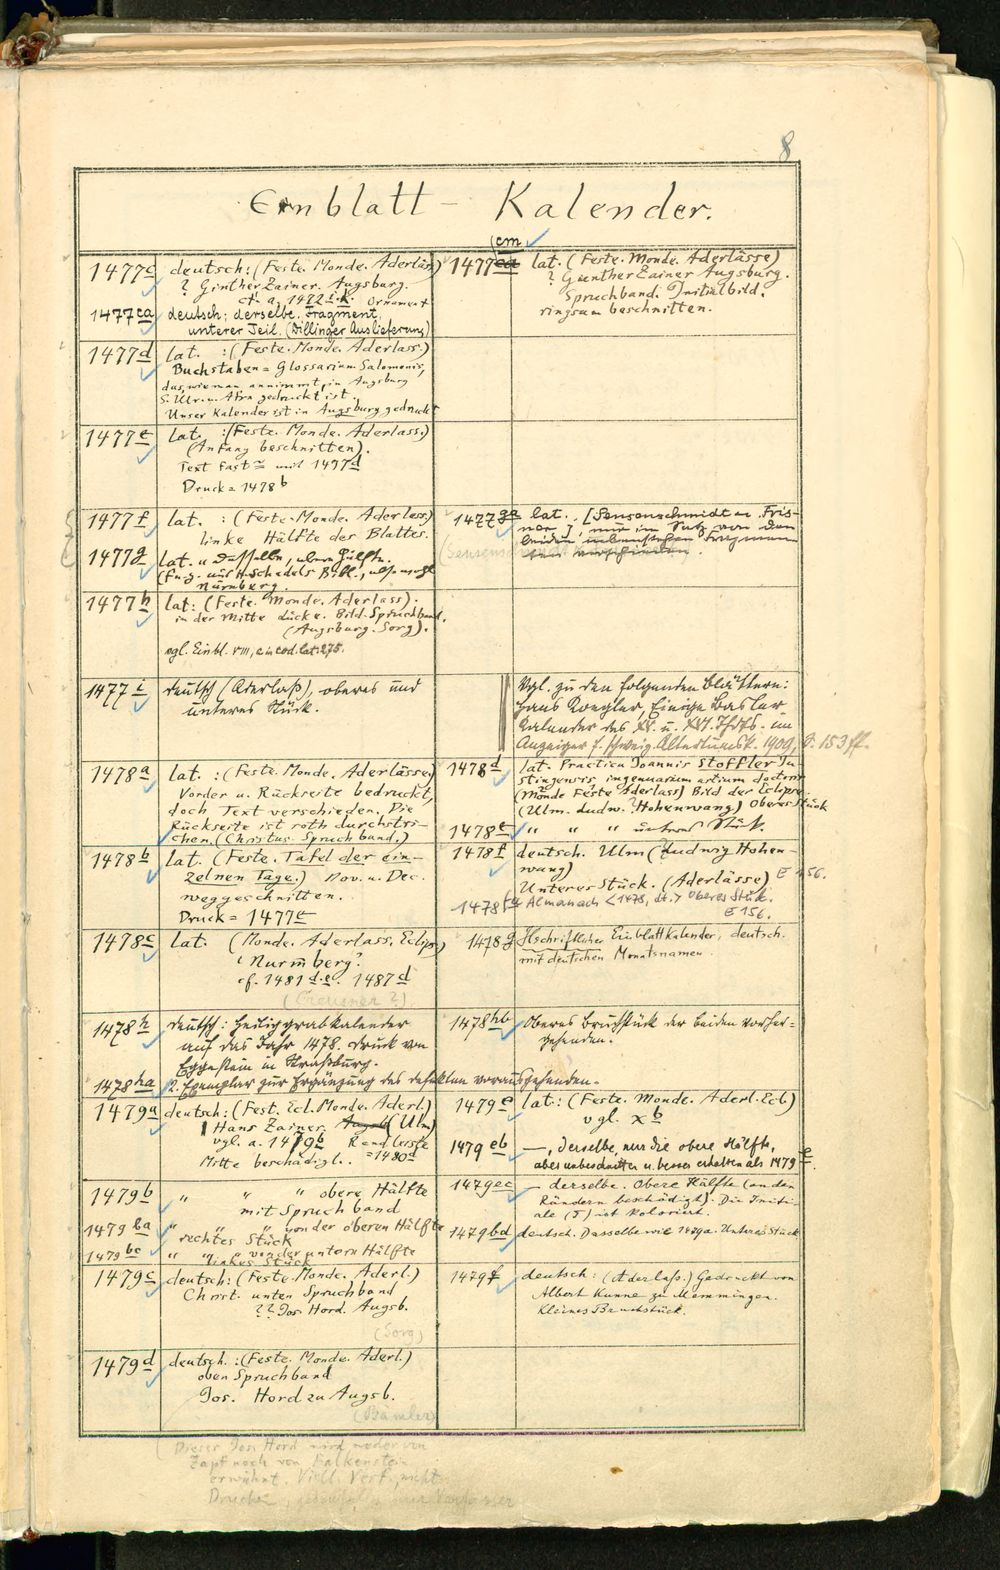 8
Einblatt - Kalender.
1477c deutsch: (Feste. Monde. Aderläss)
? Ginther Zainer. Augsburg.
cf. a. 1472 Ornament
1477ca deutsch; derselbe. Fragment,
unterer Teil. (Dillinger Auslieferung)
1477d lat. : (Feste. Monde. Aderlass.)
Buchstaben = Glossarium Salomonis,
das, wie man annimmt, in Augsburg
S. Ulr. u. Afra gedruckt ist.
Unser Kalender ist in Augsburg gedruckt
1477e lat. : (Feste. Monde. Aderlass.)
(Anfang beschnitten).
Text fast = mit 1477d
Druck = 1478b
1477f lat. : (Feste. Monde. Aderlass.)
linke Hälfte des Blattes.
1477g lat. u dasselbe, obere Hälfte.
(Fu. g. aus H. Schedels Bibl., also wohl
Nürnberg.
1477h lat: (Feste. Monde. Aderlass).
in der Mitte Lücke. Bild. Spruchband.
(Augsburg. Sorg).
vgl. Einbl. VIII, in cod. lat. 275.
1477i deutsch (Aderlaß), oberes und
unteres Stück.
1478a lat. : (Feste. Monde. Aderlässe.)
Vorder u. Rückseite bedruckt,
doch Text verschieden. Die
Rückseite ist roth durchstri-
chen. (Christus. Spruchband.)
1478b lat. (Feste. Tafel der ein-
zelnen Tage.) Nov. u. Dec.
weggeschnitten.
Druck = 1477e
1478c lat. (Monde. Aderlass. Eclips.)
Nurmberg?
cf. 1481 d.e. 1487d
(Creusner?)
1478h deutsch: Heiliggrabkalender
auf das Jahr 1478. Druck von
Eggestein in Straßburg.
1478ha 2. Exemplar zur Ergänzung des defekten vorausgehenden.
1479a deutsch: (Fest. Ecl. Monde. Aderl.)
Hans Zainer. Augsb (Ulm)
vgl. a. 1479b Randleiste
Mitte beschädigt. = 1480d
1479b " " " obere Hälfte
mit Spruchband
1479ba " " " von der oberen Hälfte
rechtes Stück
1479bc " " " von der untern Hälfte
linkes Stück
1479c deutsch: (Feste. Monde. Aderl.)
Christ. unten Spruchband
?? Jos. Hord. Augsb.
(Sorg)
1479d deutsch. : (Feste. Monde. Aderl.)
oben Spruchband
Jos. Hord zu Augsb.
(Bämler)
(Dieser Jos Hord wird weder von
Zapf noch von Falkenstein
erwähnt. Viell. Verf., nicht
Drucker,
(cm
1477ca lat. (Feste. Monde. Aderlässe)
? Günther Zainer Augsburg.
Spruchband. Initialbild.
ringsum beschnitten.
1477ga lat., [Sensenschmidt u. Fris-
ner], nur im Satz von den
beiden nebenstehen Fragmen-
ten verschieden.
Vgl. zu den folgenden Blättern:
Hans Koegler, Einige Basler
Kalender des XV. u. XVI. Jhdts. im
Anzeiger f. schweiz. Altertumsk. 1909, S. 153ff.
1478d lat. Practica Joannis Stoffler Ju-
stingensis, ingenuarium artium doctoris
(Monde Feste Aderlass) Bild der Eclipse
(Ulm. Ludw. Hohenwang) Oberes Stück
1478e " " " unteres Stück.
1478f deutsch. Ulm (Ludwig Hohen-
wang)
Unteres Stück. (Aderlässe) E 156.
1478fa Almanach <1478, dt.> Oberes Stück.
E 156.
1478g Hschriftlicher Einblattkalender, deutsch.
mit deutschen Monatsnamen
1478hb Oberes Bruchstück der beiden vorher-
gehenden.
1479e lat.: (Feste. Monde. Aderl. Ecl)
vgl. xb
1479eb —, derselbe, nur die obere Hälfte,
aber unbeschnitten u. besser erhalten als 1479e.
1479ec — derselbe. Obere Hälfte (an den
Rändern beschädigt). Die Initi-
ale (J) ist koloriert.
1479bd deutsch. Dasselbe wie 1479a. Unteres Stück
1479f deutsch: (Aderlass.) Gedruckt von
Albert Kunne zu Memmingen.
Kleines Bruchstück.